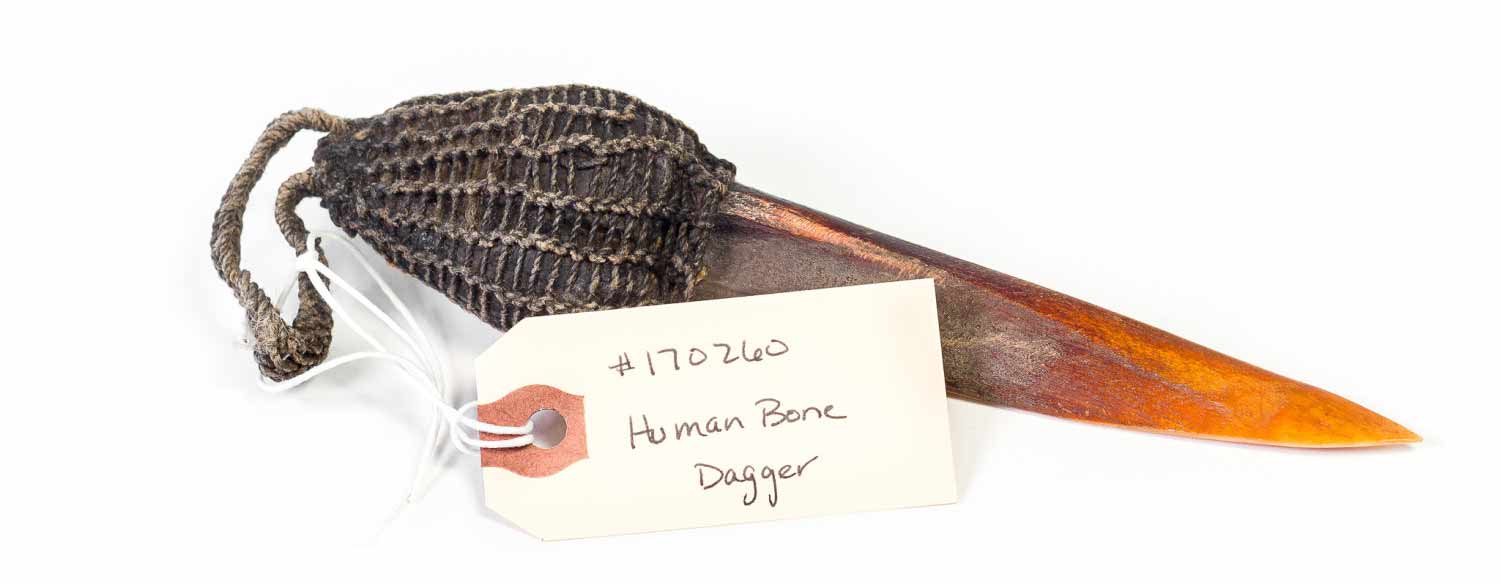 #170260
Human Bone
Dagger